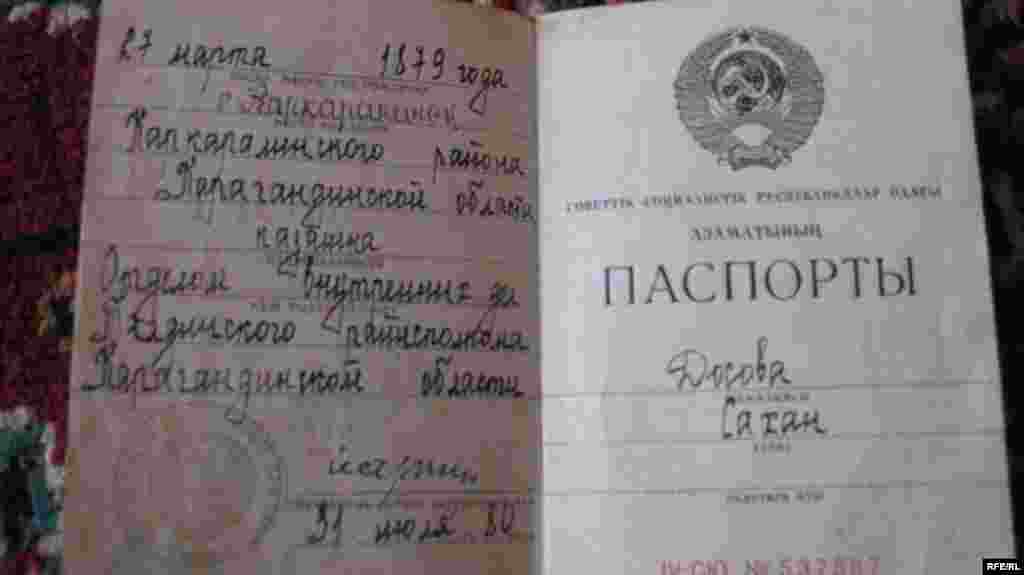 27 марта 1879 года
г. Каркаралинск
Каркаралинского района
Карагандинской области
казашка
Отделом внутренних дел
райисполкома
Карагандинской области
31 июля 80
СОВЕТТІК СОЦИАЛИСТІК РЕСПУБЛИКАЛАР ОДАҒЫ
АЗАМАТЫНЫҢ
ПАСПОРТЫ
Досова
Сахан
IV-СЮ № 537587
RFE/RL